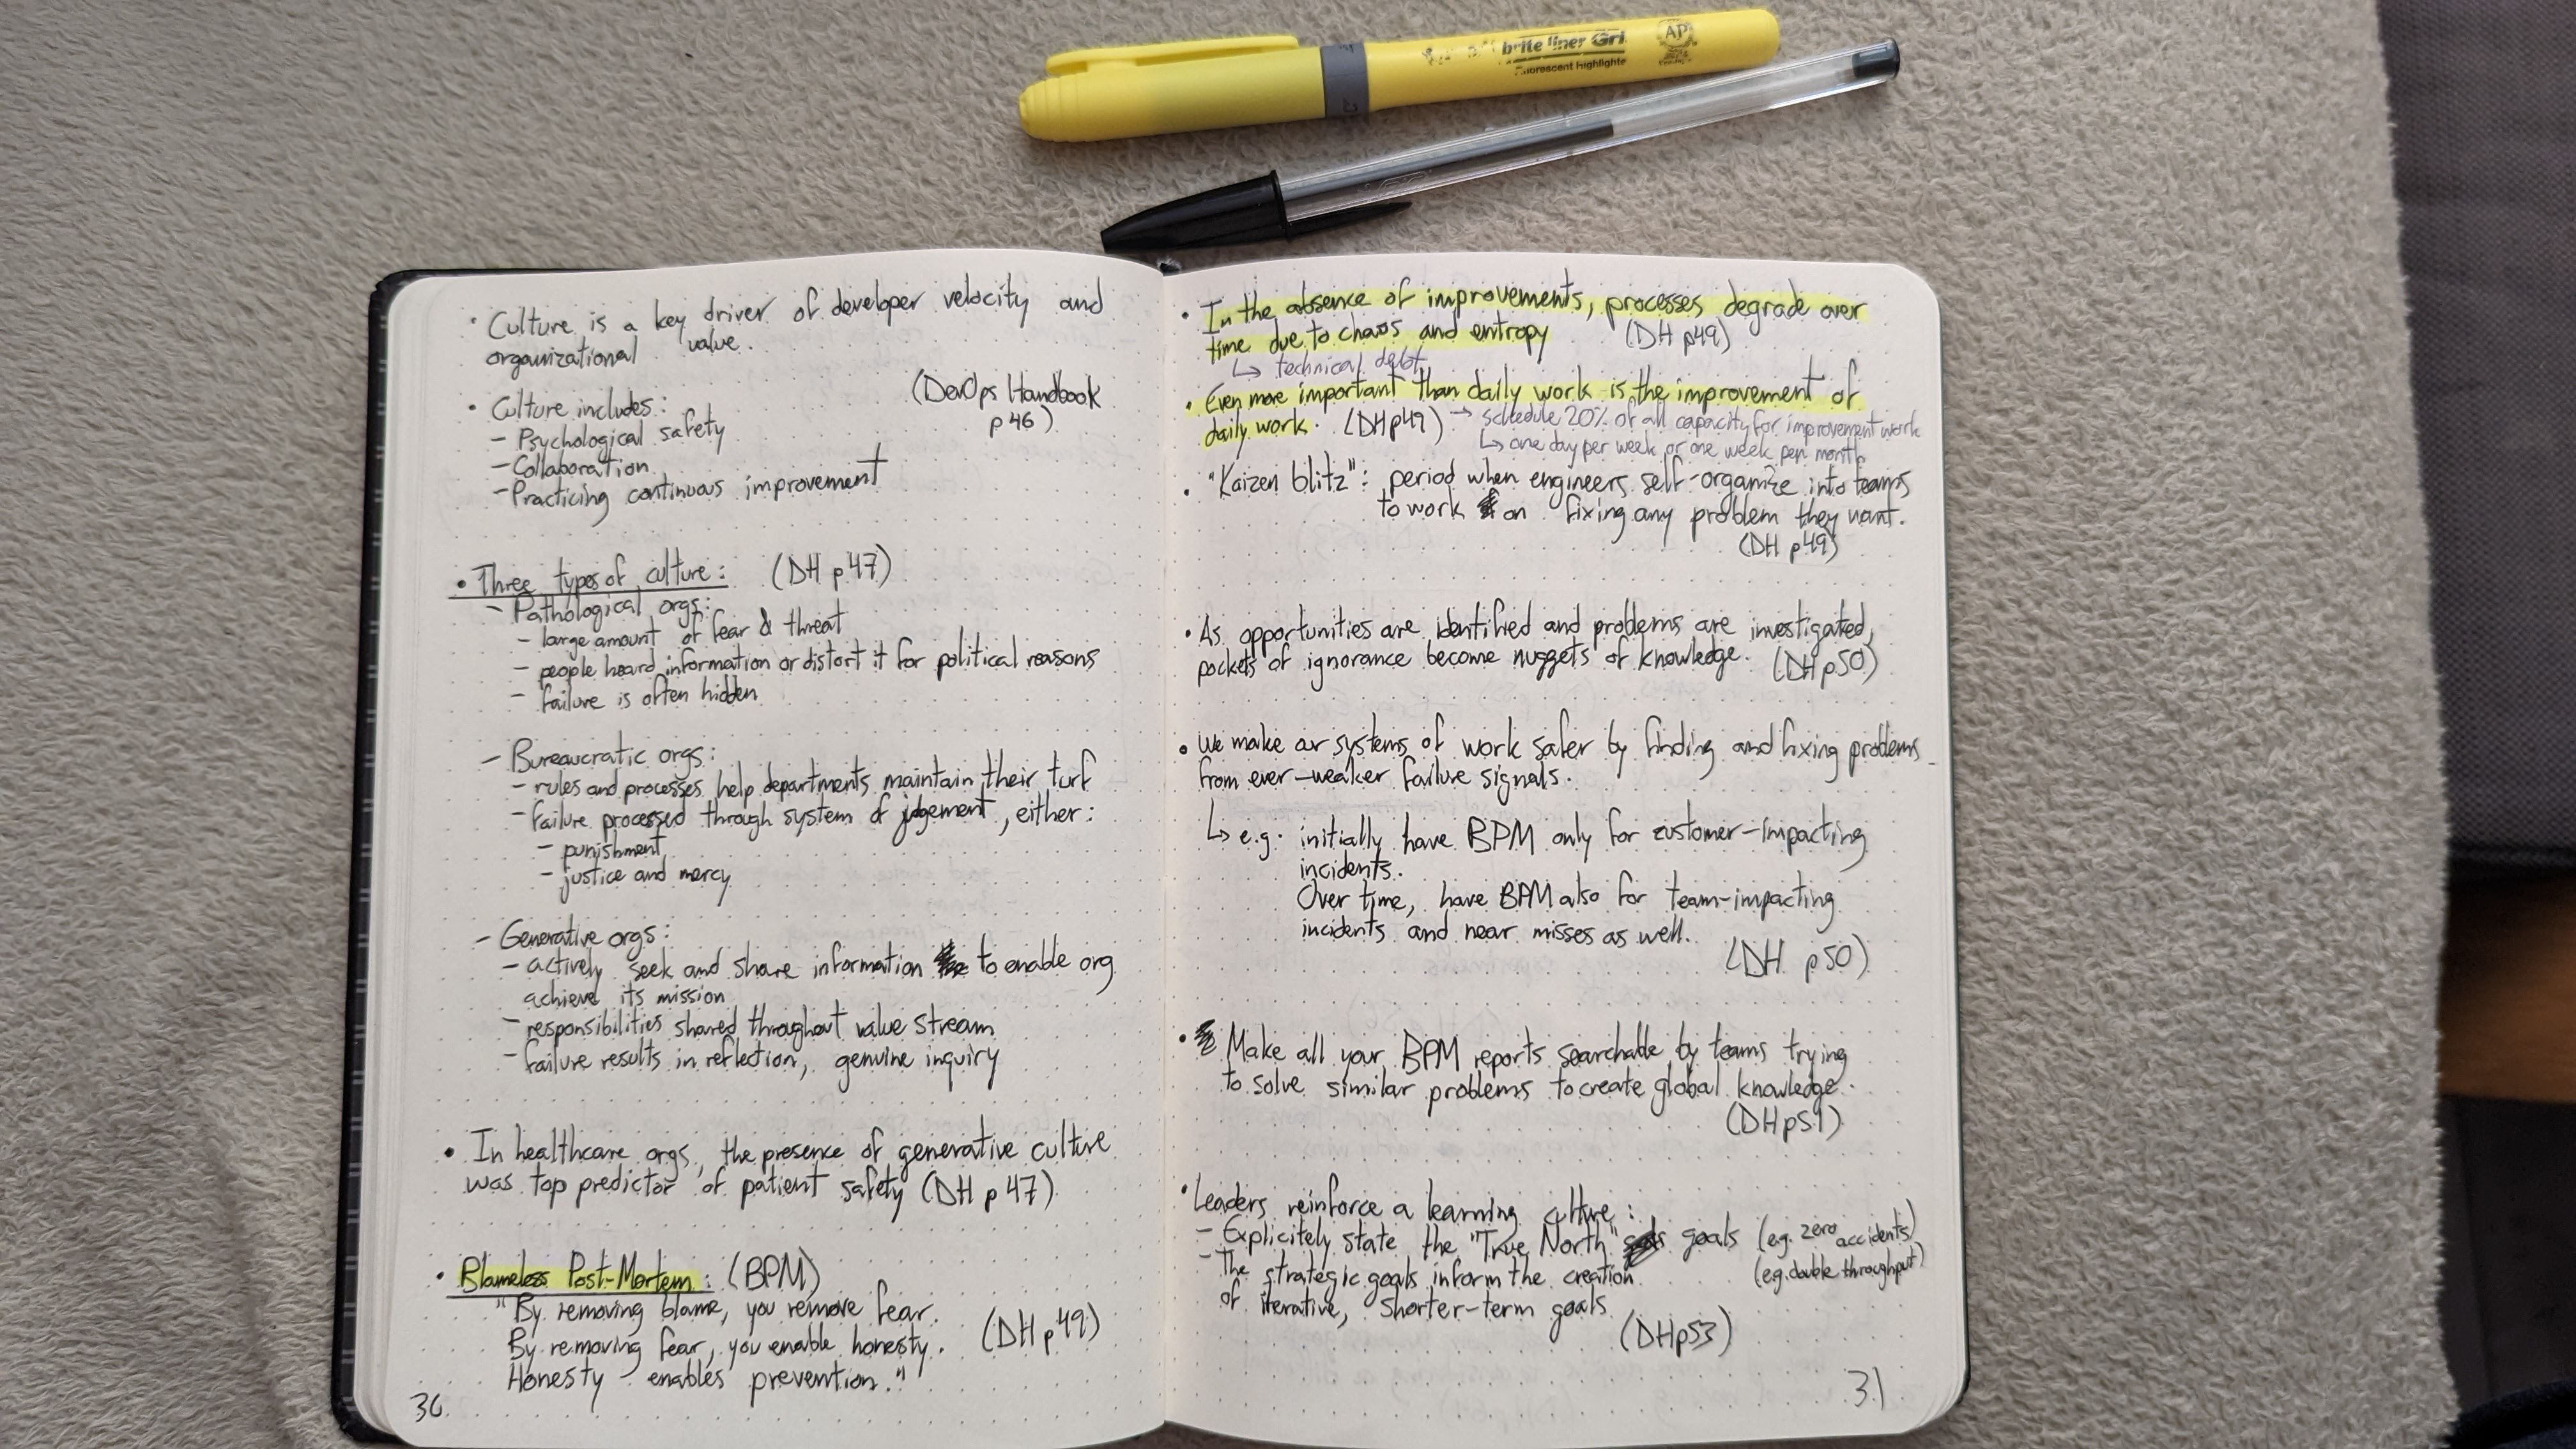 brite liner Gri
fluorescent highlighte
AP
• Culture is a key driver of developer velocity and
organizational value.
(DevOps Handbook
p46)
• Culture includes:
- Psychological safety
- Collaboration
- Practicing continuous improvement
• Three types of culture: (DH p47)
- Pathological orgs:
- large amount of fear & threat
- people hoard information or distort it for political reasons
- failure is often hidden
- Bureaucratic orgs:
- rules and processes help departments maintain their turf
- failure processed through system of judgement, either:
- punishment
- justice and mercy
- Generative orgs:
- actively seek and share information to enable org
achieve its mission
- responsibilities shared throughout value stream
- failure results in reflection, genuine inquiry
• In healthcare orgs, the presence of generative culture
was top predictor of patient safety (DH p47)
• Blameless Post-Mortem: (BPM)
"By removing blame, you remove fear.
By removing fear, you enable honesty. (DH p49)
Honesty enables prevention."
30
• In the absence of improvements, processes degrade over
time due to chaos and entropy (DH p49)
↳ technical debt
• Even more important than daily work is the improvement of
daily work. (DH p49) → schedule 20% of all capacity for improvement work
↳ one day per week or one week per month
• "Kaizen blitz": period when engineers self-organize into teams
to work on fixing any problem they want.
(DH p49)
• As opportunities are identified and problems are investigated,
pockets of ignorance become nuggets of knowledge. (DH p50)
• We make our systems of work safer by finding and fixing problems
from ever-weaker failure signals.
↳ e.g. initially have BPM only for customer-impacting
incidents.
Over time, have BPM also for team-impacting
incidents and near misses as well.
(DH p50)
• Make all your BPM reports searchable by teams trying
to solve similar problems to create global knowledge.
(DH p51)
• Leaders reinforce a learning culture:
- Explicitely state the "True North" goals (eg. zero accidents)
- The strategic goals inform the creation (e.g. double throughput)
of iterative, shorter-term goals
(DH p53)
31